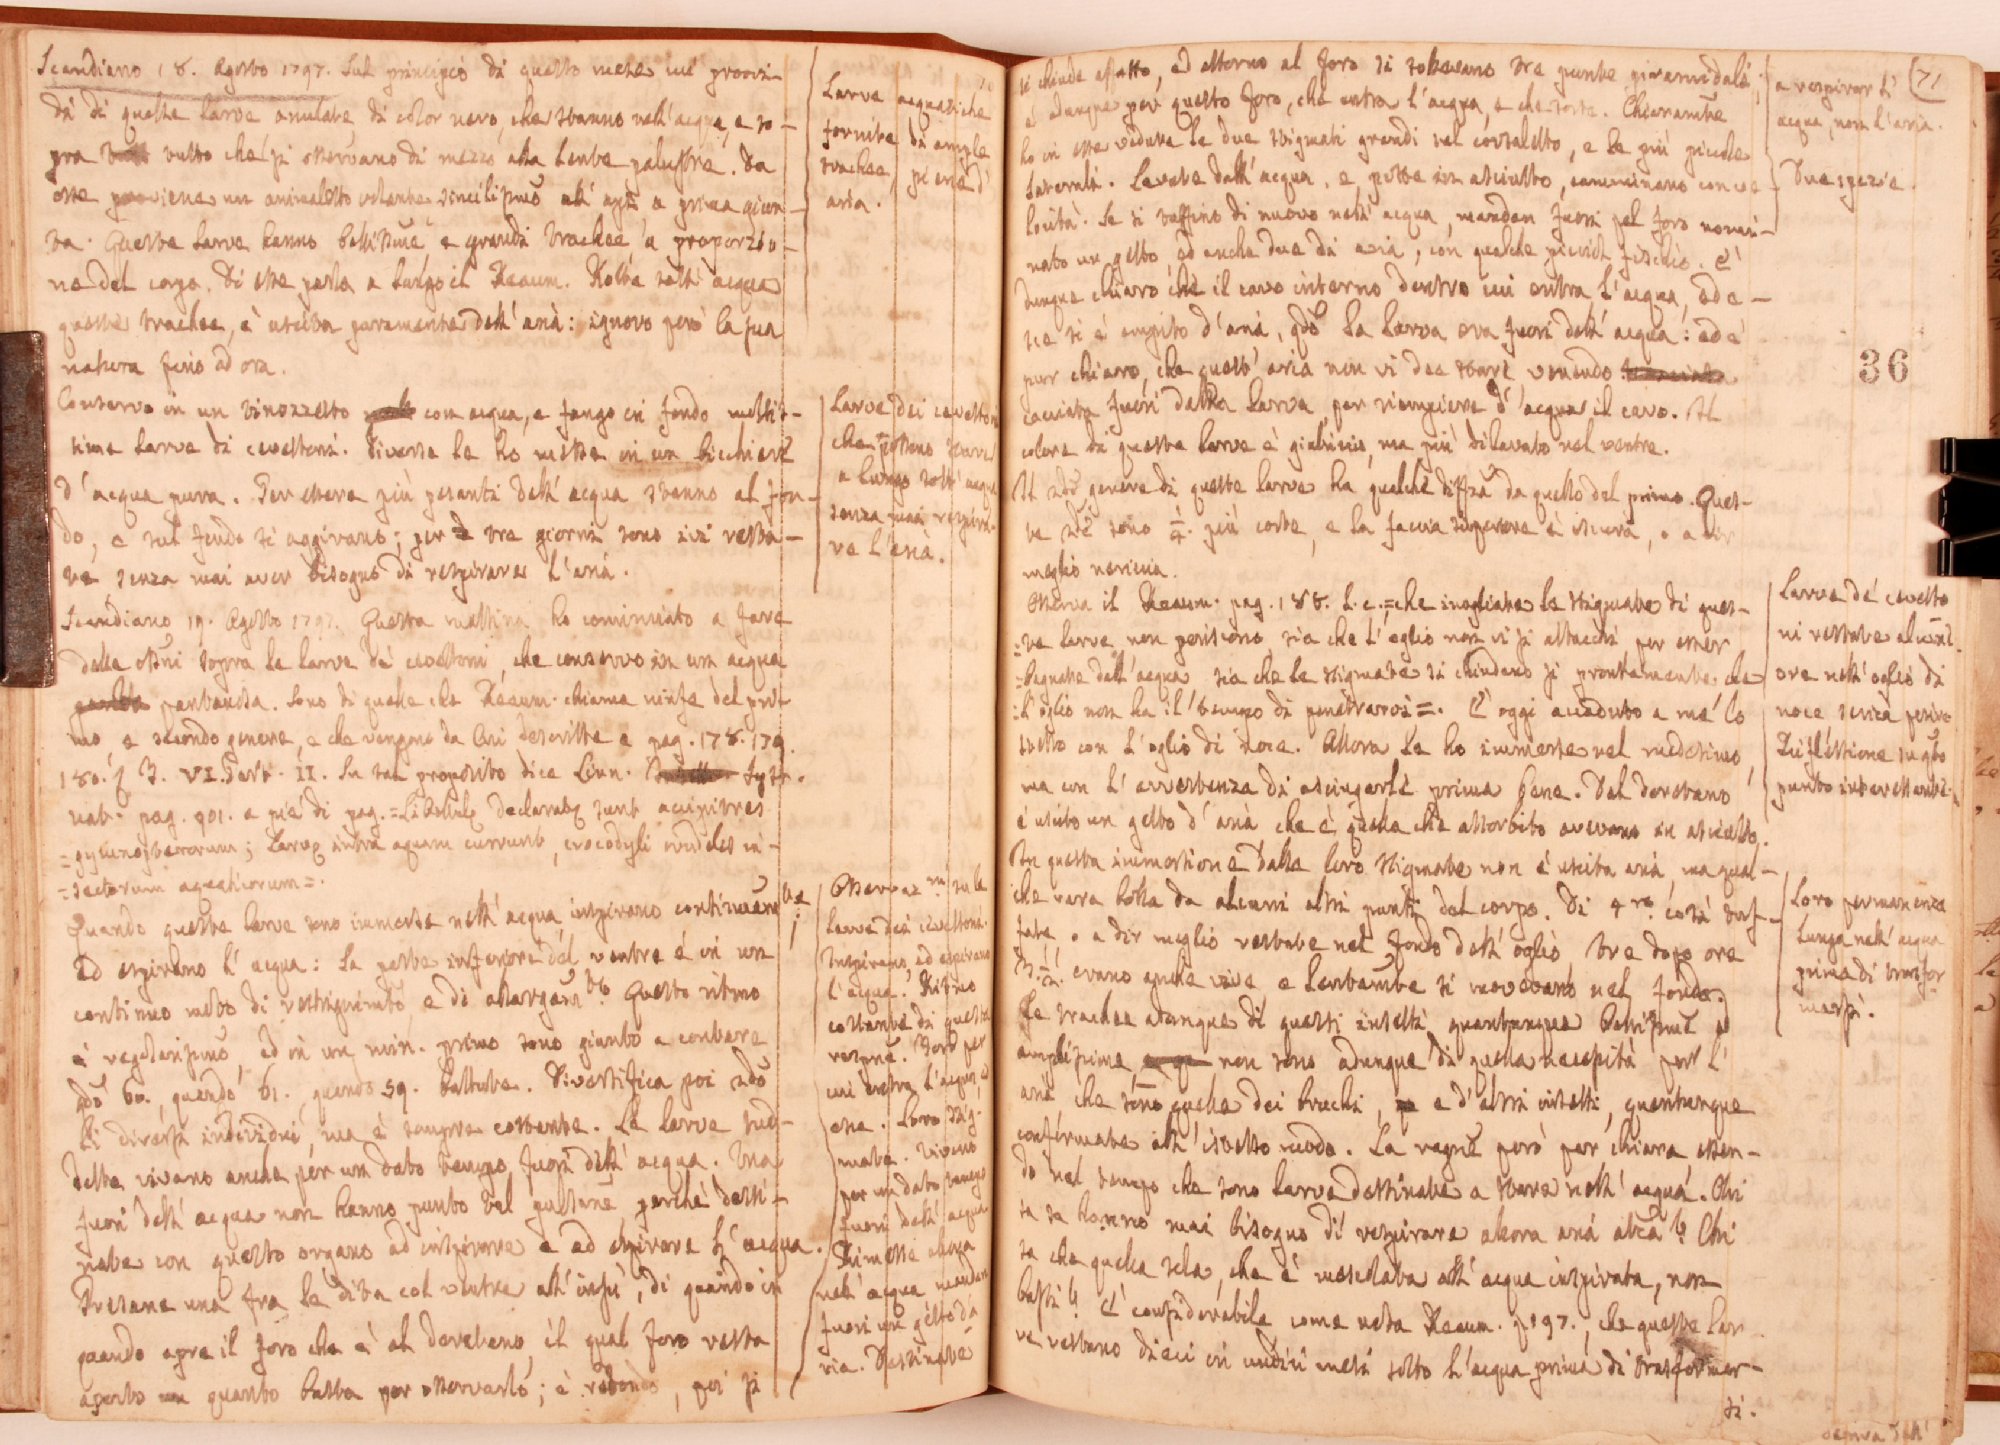 Scandiano 18. Agosto 1797. Sul principio di questo mese mi provvi-
di di quelle larve anulate, di color nero, che stanno nell'acqua, e so-
pra tutto che si osservano di mezzo alla lente palustre. Da
esse proviene un animaletto volante
ta. Queste larve hanno bellissime e grandi trachee a proporzio-
ne del corpo. Di esse parla a lungo il Reaum. Rotte sott'acqua
queste trachee, è uscita puramente dell'aria: ignoro però la sua
natura fino ad ora.
Conservo in un tinozzetto con acqua, e fango in fondo moltis-
sime larve di cevettoni. Diverse le ho messe in un bicchiere
d'acqua pura. Per essere più pesanti dell'acqua stanno al fon-
do, e sul fondo si aggirano; per tre giorni sono ivi resta-
te senza mai aver bisogno di respirare l'aria.
Scandiano 19. Agosto 1797. Questa mattina ho cominciato a fare
delle ossni sopra le larve de' cevettoni, che conservo in un acqua
pantanosa. Sono di quelle che Reaum. chiama ninfe del pri-
mo, e secondo genere, e che vengono da lui descritte a pag. 178. 179.
180. T. VI. Part. II. Su tal proposito dice Linn. Syst.
nat. pag. 901. a piè di pag. = Libellulæ declaratæ sunt accipitres
= gymnopterorum; Larvæ intra aquam currunt, crocodyli crudeles in-
= sectorum aquaticorum =.
Quando queste larve sono immerse nell'acqua, inspirano continuam.te
ed espirano l'acqua: la parte inferiore del ventre è in un
continuo moto di restrignimto, e di allargam.to Questo ritmo
è regolarissimo, ed in un min. primo sono giunto a contare
qdo 60., quando 61., quando 59. battute. Diversifica poi sdo
li diversi individui, ma è sempre costante. Le larve sud-
dette vivano anche per un dato tempo fuori dell'acqua. Ma
fuori dell'acqua non hanno punto tal perchè desti-
nate con questo organo ad inspirare e ad espirare l'acqua.
Presane una fra le dita col ventre all'insù, di quando in
quando apre il foro che è al deretano, il qual foro resta
aperto quanto basta per osservarlo; è rotondo, poi si
Larve acquatiche
fornite di ample
trachee, piene d'
aria.
Larve dei cevettoni
che possono stare
a lungo sott'acqua
senza mai respira-
re l'aria.
Osservaz.ni su le
larve dei cevettoni.
Inspirano, ed espirano
l'acqua. Ritmo
costante di questa
respne. Foro per
cui entra l'acqua, ed
esce. Loro stig-
mate. Vivono
per un dato tempo
fuori dell'acqua
Rimesse allora
nell'acqua mandan
fuori un getto d'a
ria. Destinate
si chiude affatto, ed attorno al foro si sollevano tre punte piramidali;
è adunque per questo foro, che entra l'acqua, e che sorte. Chiaramte
ho in esse vedute le due stigmati grandi nel corsaletto, e le più piccole
laterali. Levate dall'acqua, e poste in asciutto, camminano con ve-
locità. Se si tuffino di nuovo nell'acqua, mandan fuori pel foro nomi-
nato un getto ed anche due di aria, con qualche piccol fischio. È
dunque chiaro che il cavo interno dentro cui entra l'acqua, ed e-
sce si è empito d'aria, qdo la larva era fuori dell'acqua: ed è
pur chiaro, che quest'aria non vi dee stare, venendo
cacciata fuori dalla larva per riempiere d'acqua il cavo. Il
colore di queste larve è gialliccio, ma più dilavato nel ventre.
Il sdo genere di queste larve ha qualche diffza da quello del primo. Ques-
te sde sono 1/4. più corte, e la faccia superiore è iscura, o a dir
meglio nericcia.
Osserva il Reaum. pag. 188. l. c. = che inogliate le stigmate di ques-
= te larve non periscono, sia che l'oglio non vi si attacchi per esser
= bagnate dall'acqua, sia che le stigmate si chiudano sì prontamente che
= l'oglio non ha il tempo di penetrarvi =. È oggi accaduto a me lo
stesso con l'oglio di noce. Allora le ho immerse nel medesimo,
ma con l'avvertenza di asciugarle prima bene. Dal deretano
è uscito un getto d'aria che è quella che assorbito avevano in asciutto.
In questa immersione dalle loro stigmate non è uscita aria, ma qual-
che rara bolla da alcuni altri punti del corpo. Di 4.ro così tuf-
fate, o a dir meglio restate nel fondo dell'oglio, tre dopo ore
3. 1/2. erano anche vive e lentamte si movevano nel fondo.
Le trachee adunque di questi insetti quantunque bellissime ed
amplissime non sono adunque di quella necessità per l'
aria, che sono quelle dei bruchi, e d'altri insetti, quantunque
conformate all'istesso modo. La ragne però par chiara, essen-
do nel tempo che sono larve destinate a stare nell'acqua. Chi
sa se hanno mai bisogno di respirare allora aria alcuna? Chi
sa che quella sola, che è mescolata all'acqua inspirata, non
basti? È considerabile come nota Reaum. p. 197., che queste lar-
ve restano dieci in undici mesi sotto l'acqua prima di trasformar-
si.
a respirar l'
acqua, non l'aria.
Due specie.
71
36
Larve de' cevetto
ni restate alcune
ore nell'oglio di
noce senza perire
Riflessione su qto
punto interessante.
Loro permanenza
lunga nell'acqua
prima di trasfor
marsi.